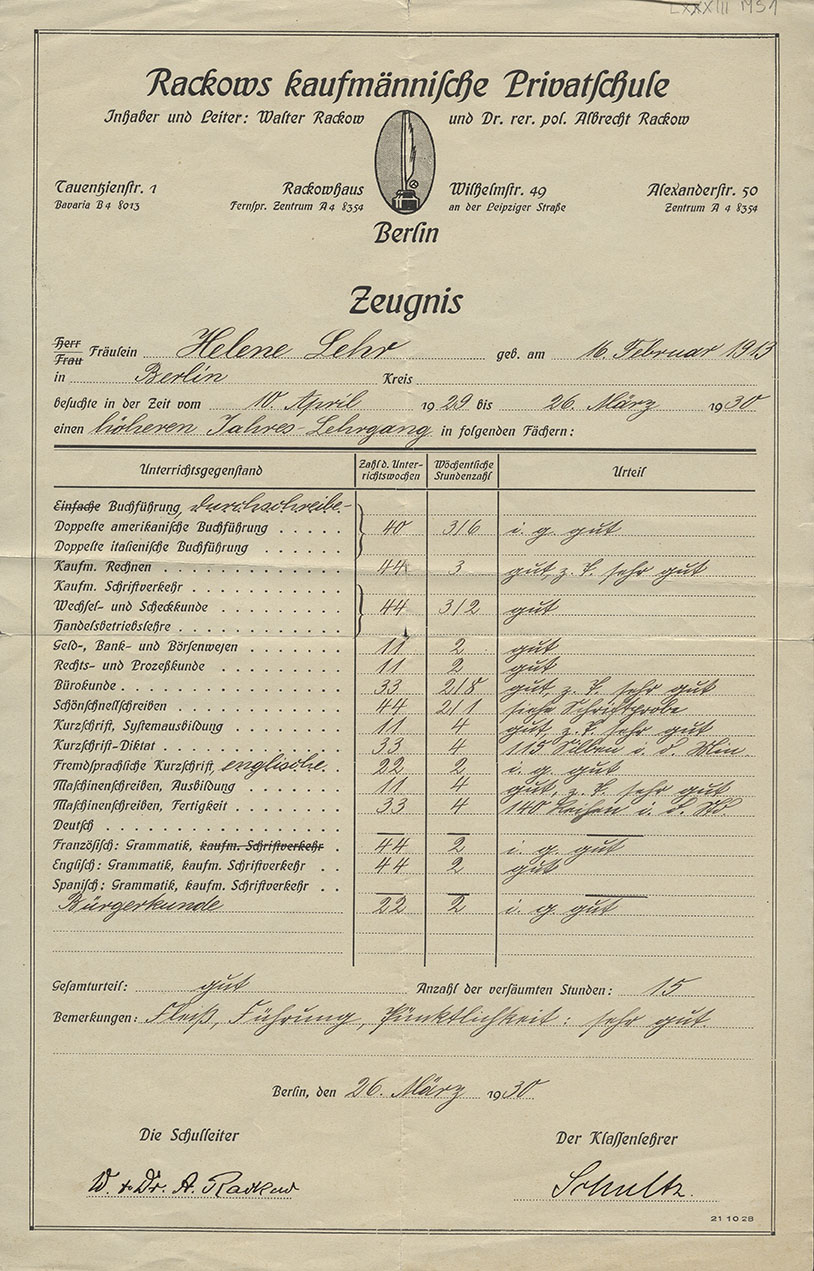 LXXXIII 1451
Rackows kaufmännische Privatschule
Inhaber und Leiter: Walter Rackow und Dr. rer. pol. Albrecht Rackow
Tauentzienstr. 1 Rackowhaus Wilhelmstr. 49 Alexanderstr. 50
Bavaria B 4 8013 Fernspr. Zentrum A 4 8354 an der Leipziger Straße Zentrum A 4 8354
Berlin
Zeugnis
Herr
Frau Fräulein Helene Lehr geb. am 16. Februar 1913
in Berlin Kreis
besuchte in der Zeit vom 10. April 1929 bis 26. März 1930
einen höheren Jahres-Lehrgang in folgenden Fächern:
Unterrichtsgegenstand Zahl d. Unterrichtswochen Wöchentliche Stundenzahl Urteil
Einfache Buchführung Durchschreibe-
Doppelte amerikanische Buchführung 40 3/6 i. g. gut
Doppelte italienische Buchführung
Kaufm. Rechnen 44 3 gut, z. T. sehr gut
Kaufm. Schriftverkehr
Wechsel- und Scheckkunde 44 3/2 gut
Handelsbetriebslehre
Geld-, Bank- und Börsenwesen 11 2 gut
Rechts- und Prozeßkunde 11 2 gut
Bürokunde 33 2/8 gut, z. T. sehr gut
Schönschnellschreiben 44 2/1 siehe Schriftprobe
Kurzschrift, Systemausbildung 11 4 gut, z. T. sehr gut
Kurzschrift-Diktat 33 4 115 Silben i. d. Min
Fremdsprachliche Kurzschrift, englische. 22 2 i. g. gut
Maschinenschreiben, Ausbildung 11 4 gut, z. T. sehr gut
Maschinenschreiben, Fertigkeit 33 4 140 Reihen i. d. Std.
Deutsch — — —
Französisch: Grammatik, kaufm. Schriftverkehr 44 2 i. g. gut
Englisch: Grammatik, kaufm. Schriftverkehr 44 2 gut
Spanisch: Grammatik, kaufm. Schriftverkehr — — —
Bürgerkunde 22 2 i. g. gut
Gesamturteil: gut Anzahl der versäumten Stunden: 15
Bemerkungen: Fleiß, Führung, Pünktlichkeit: sehr gut.
Berlin, den 26. März 1930
Die Schulleiter Der Klassenlehrer
W. + Dr. A. Rackow Schultz.
21 10 28